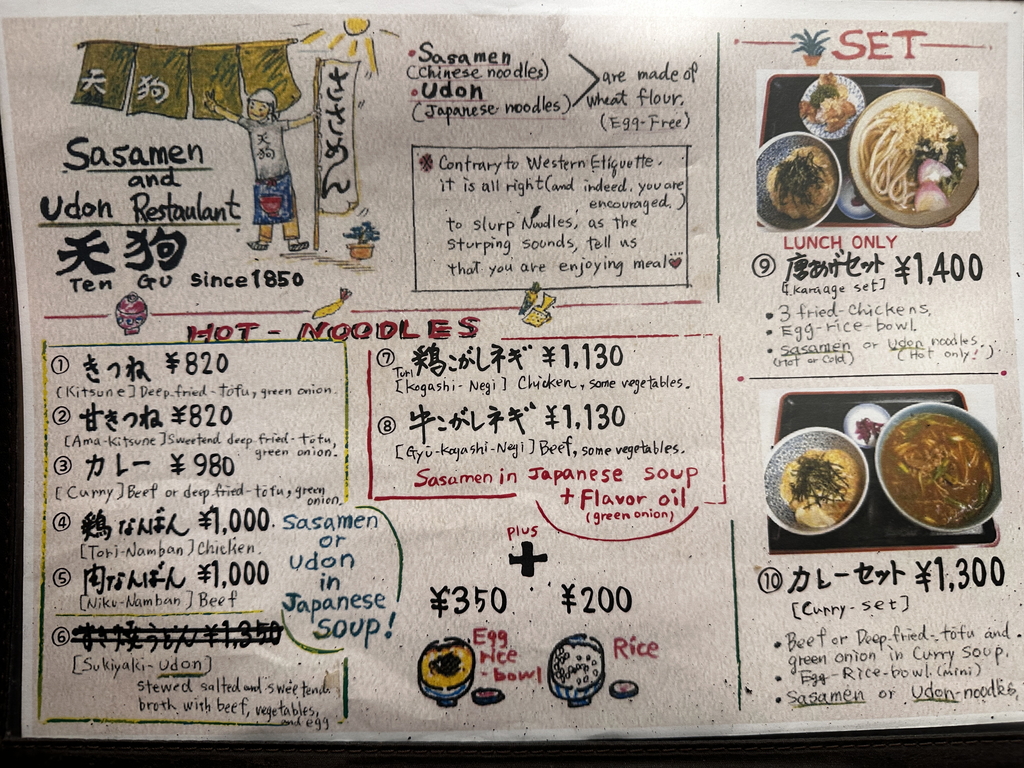 天 狗
天
狗
ささめん
Sasamen
and
Udon Restaulant
天 狗
Ten Gu Since 1850
• Sasamen
(Chinese noodles)
• Udon
(Japanese noodles)
are made of
wheat flour.
(Egg-Free)
※ Contrary to Western Etiquette.
it is all right (and indeed, you are
encouraged.)
to slurp Noodles, as the
slurping sounds, tell us
that you are enjoying meal♥
HOT - NOODLES
① きつね ¥820
[Kitsune] Deep fried-tofu, green onion.
② 甘きつね ¥820
[Ama-Kitsune] Sweetend deep fried-tofu,
green onion.
③ カレー ¥980
[Curry] Beef or deep fried-tofu, green
onion.
④ 鶏なんばん ¥1,000
[Tori-Namban] Chicken.
⑤ 肉なんばん ¥1,000
[Niku-Namban] Beef
⑥ すき焼うどん ¥1,350
[Sukiyaki-udon]
stewed salted and sweetend
broth with beef, vegetables,
and egg
Sasamen
or
Udon
in
Japanese
Soup!
⑦ 鶏こがしネギ ¥1,130
Tori
[Kogashi-Negi] Chicken, some vegetables.
⑧ 牛こがしネギ ¥1,130
[Gyu-Kogashi-Negi] Beef, some vegetables.
Sasamen in Japanese soup
+ Flavor oil
(green onion)
plus
+
¥350 ¥200
Egg
rice
-bowl
Rice
SET
LUNCH ONLY
⑨ 唐あげセット ¥1,400
[Karaage set]
• 3 fried-chickens.
• Egg-rice-bowl.
• Sasamen or Udon noodles.
(Hot or Cold) (Hot only!)
⑩ カレーセット ¥1,300
[Curry-set]
• Beef or Deep fried-tofu and
green onion in Curry soup.
• Egg-Rice-bowl (mini)
• Sasamen or Udon-noodles,